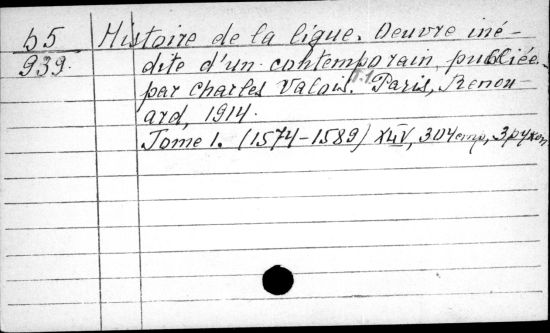 b5 Histoire de la ligue. Oeuvre iné-
939. dite d'un contemporain, publiée
par Charles Valois. T.1. Paris, Renou-
ard, 1914.
Tome 1. (1574-1589) XLIV, 304 стр,